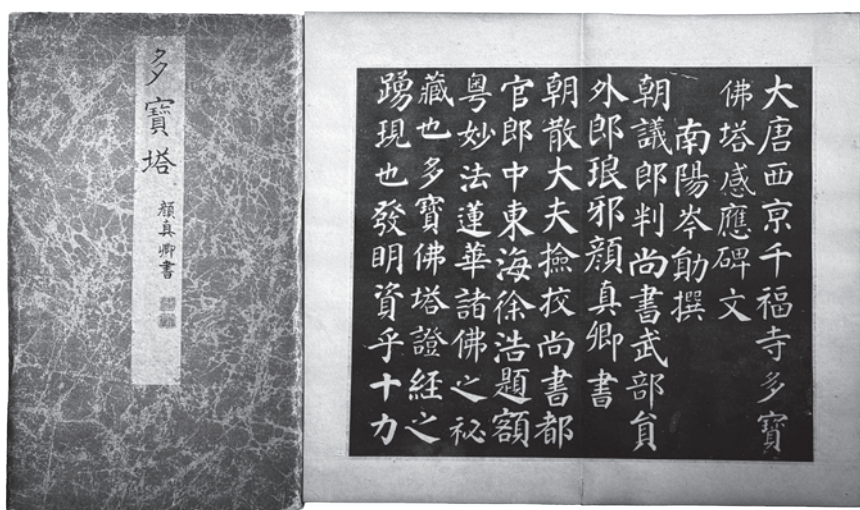 多寶塔
顏真卿書
大唐西京千福寺多寶
佛塔感應碑文
南陽岑勛撰
朝議郎判尚書武部員
外郎琅邪顏真卿書
朝散大夫撿挍尚書都
官郎中東海徐浩題額
粵妙法蓮華諸佛之祕
藏也多寶佛塔證經之
踴現也發明資乎十力